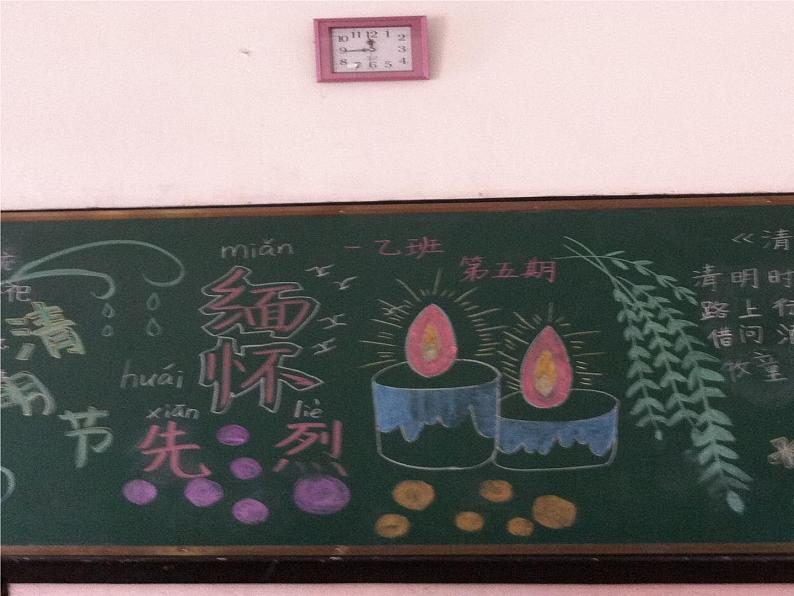 11 12 1
10 2
9 3
8 4
7 6 5
清
明
节
miǎn
缅
huái
怀
xiān liè
先烈
一乙班
第五期
《清
清明时
路上行
借问酒
牧童